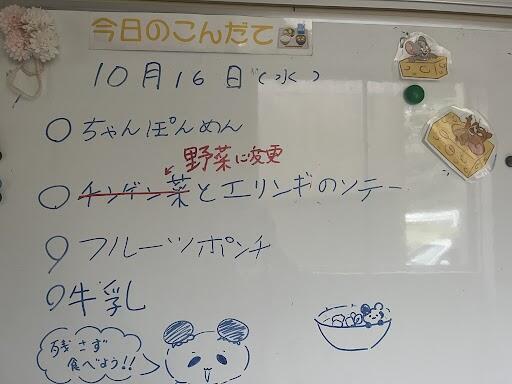 今日のこんだて
10月16日(水)
○ちゃんぽんめん
野菜に変更
○チンゲン菜とエリンギのソテー
○フルーツポンチ
○牛乳
残さず
食べよう!!